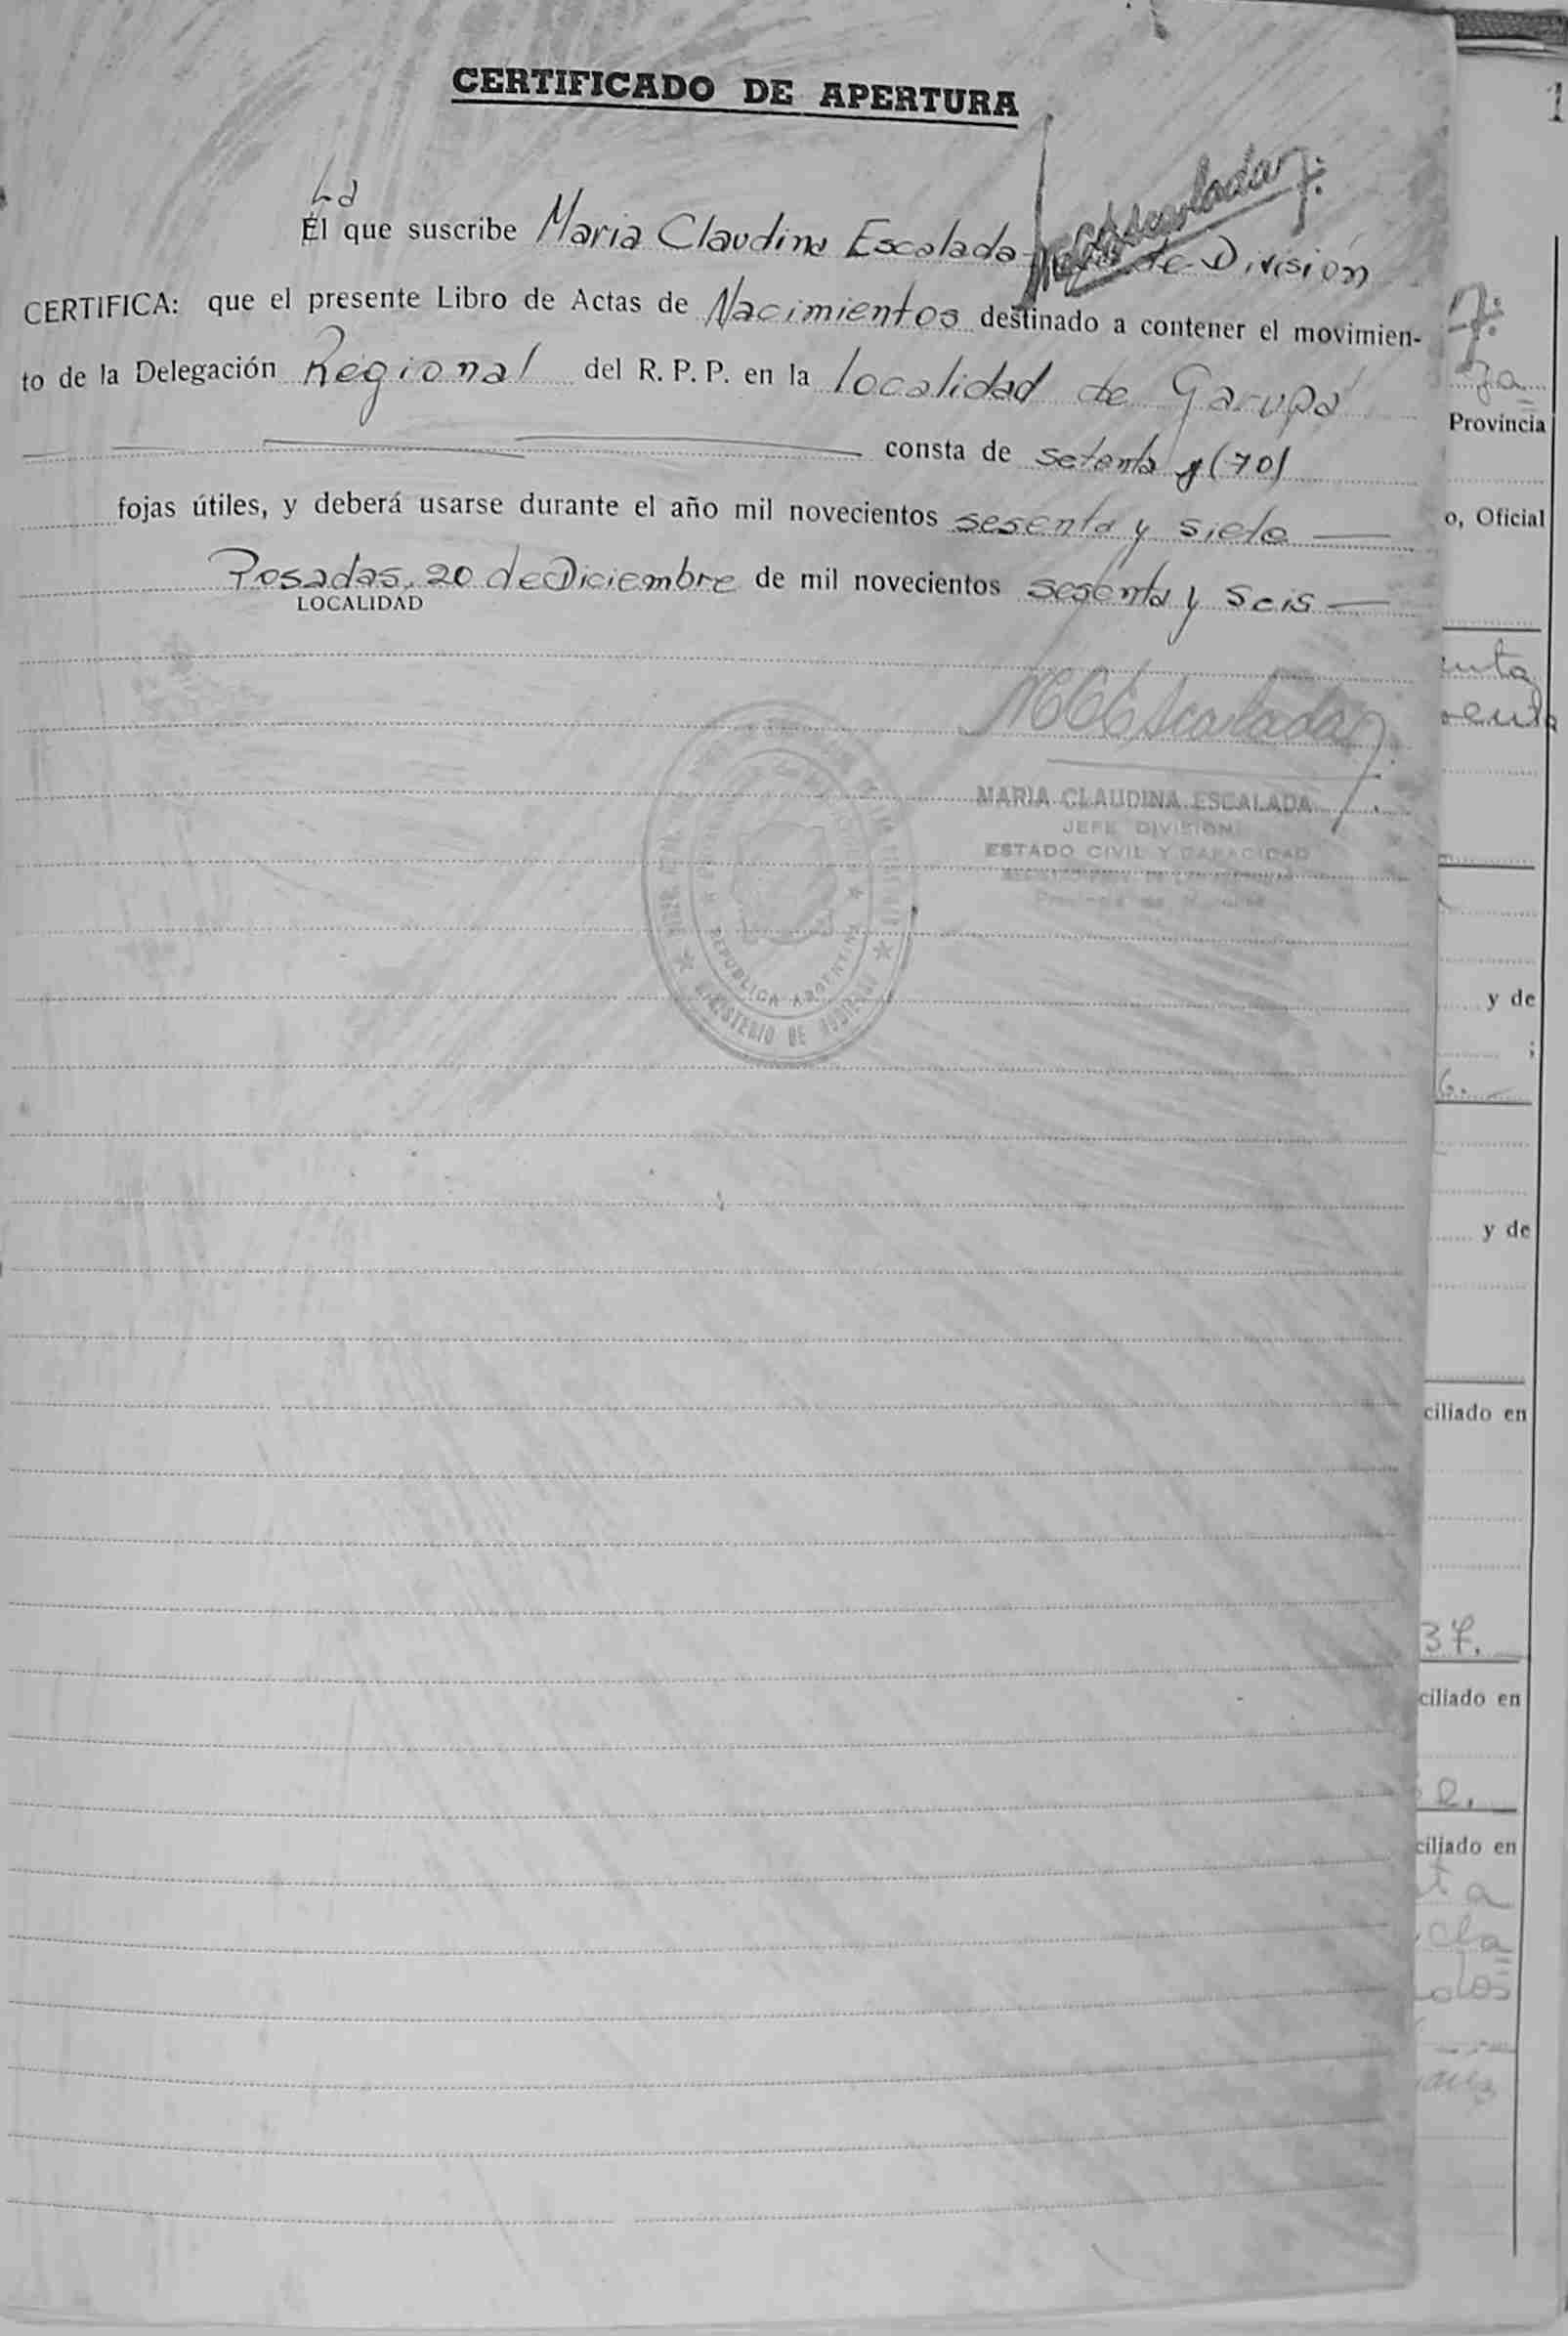 CERTIFICADO DE APERTURA
La
El que suscribe Maria Claudina Escalada de División
CERTIFICA: que el presente Libro de Actas de Nacimientos destinado a contener el movimien-
to de la Delegación Regional del R. P. P. en la localidad de Garupá
consta de setenta (70)
fojas útiles, y deberá usarse durante el año mil novecientos sesenta y siete
Posadas, 20 de Diciembre de mil novecientos sesenta y seis
LOCALIDAD
MCEscalada
MARIA CLAUDINA ESCALADA
JEFE DIVISION
ESTADO CIVIL Y CAPACIDAD
Provincia de Misiones
REPUBLICA ARGENTINA
MINISTERIO DE GOBIERNO
1
Provincia
o, Oficial
y de
;
6.
y de
ciliado en
37.
ciliado en
ciliado en